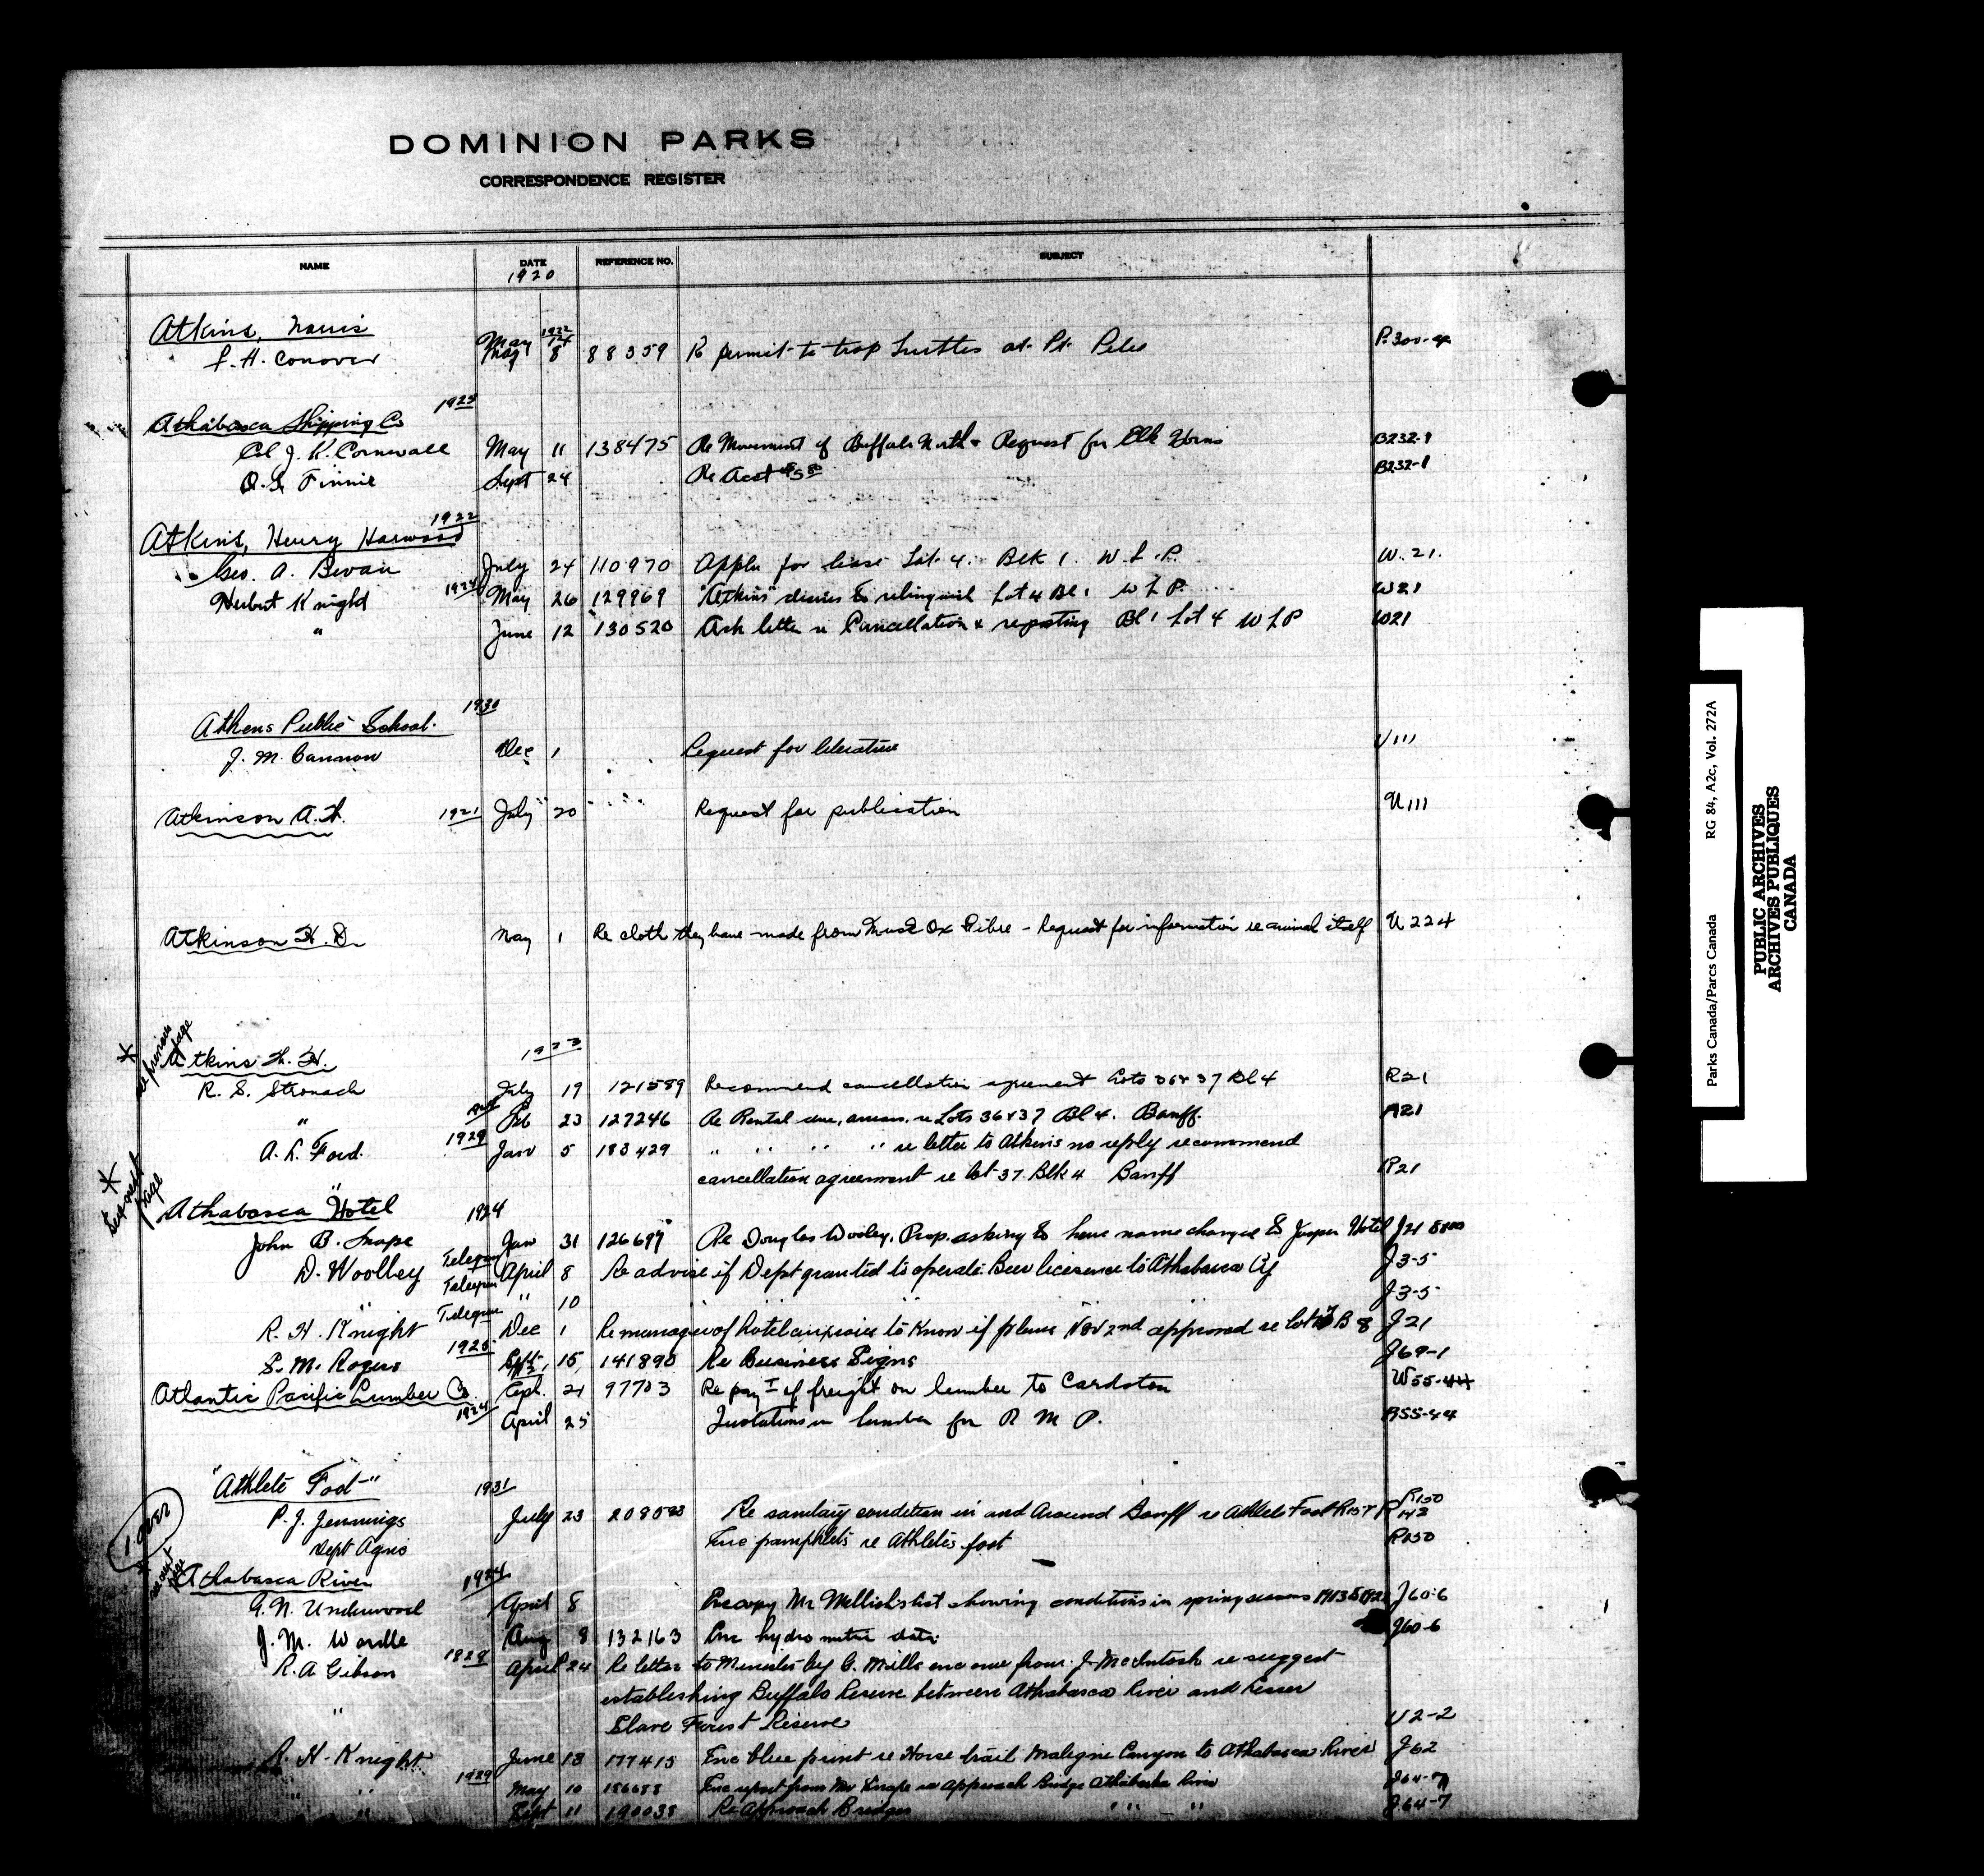 DOMINION PARKS
CORRESPONDENCE REGISTER
NAME DATE REFERENCE NO. SUBJECT
1920
Atkins, Norris
F. H. Conover May 8 88359 Re permit to trap Turtles at Pt. Pelee P.300-
1922
May 14
1925
Athabasca Shipping Co
Col J. K. Cornwall May 11 138475 Re Movement of Buffalo North & Request for Elk Horns B232-1
O. S. Finnie Sept 24 Re Acct B232-1
1922
Atkins, Henry Harwood
Geo. A. Bevan July 24 110970 Appln for lease Lot 4. Blk 1. W. L. P. W. 21.
Herbert Knight 1924 May 26 129969 "Atkins" desires to relinquish Lot 4 Bl 1 W L P. W21
" June 12 130520 Ack letter re Cancellation & reposting Bl 1 Lot 4 W L P W21
1930
Athens Public School.
J. M. Cannon Dec 1 Request for literature U111
Atkinson A. H. 1921 July 20 Request for publication U111
Atkinson H. D. May 1 Re cloth they have made from Musk Ox Fibre - Request for information re animal itself U224
* see previous page
Atkins H. H.
1923
R. S. Stronach July 19 121589 Recommend cancellation agreement Lots 36 & 37 Bl 4 R21
" Feb 23 127246 Re Rental due, arrears, re Lots 36 & 37 Bl 4. Banff. R21
A. L. Ford. 1929 Jan 5 183429 " " " " re letter to Atkins no reply recommend
cancellation agreement re lot 37. Blk 4 Banff R21
* See next page
Athabasca Hotel 1924
John B. Snape Jan 31 126697 Re Douglas Wooley, Prop. asking to have name changed to Jasper Hotel J21
D. Woolley Telegram April 8 Re advise if Dept granted to operate Beer licence to Athabasca J3-5
" Telegram " 10 " " " J3-5
R. H. Knight Telegram Dec 1 Re manager of hotel anxious to know if plans Nov 2nd approved re lots B 8 J21
S. M. Rogers 1925 Sept. 15, 141890 Re Business Signs J69-1
Atlantic Pacific Lumber Co. Sept. 21 97703 Re payt of freight on lumber to Cardston W55-44
1924 April 25 Quotations on lumber for R M P. R55-44
"Athlete Foot" 1931
P. J. Jennings July 23 Re sanitary condition in and Around Banff re Athlete Foot R157 R143 R150
Dept Agric Enc pamphlets re Athletes foot R150
see next page
Athabasca River 1924
G. N. Underwood April 8 Enc copy Mr Mellish list showing conditions in spring seasons J60-6
J. M. Wardle Aug 8 132163 Enc hydro metric data J60-6
R. A Gibson 1928 April 24 Re letter to Minister by C. Mills enc one from J. McIntosh re suggest
establishing Buffalo Reserve between Athabasca River and Lesser
" Slave Forest Reserve U2-2
R. H. Knight June 13 177415 Enc blue print re Horse trail Maligne Canyon to Athabasca River J62
" 1929 May 10 186688 Enc report from Mr Snape re approach Bridge Athabaska River J64-7
" " Sept 11 190038 Re Approach Bridges " " - " J64-7
Parks Canada/Parcs Canada RG 84, A2c, Vol. 272A
PUBLIC ARCHIVES
ARCHIVES PUBLIQUES
CANADA